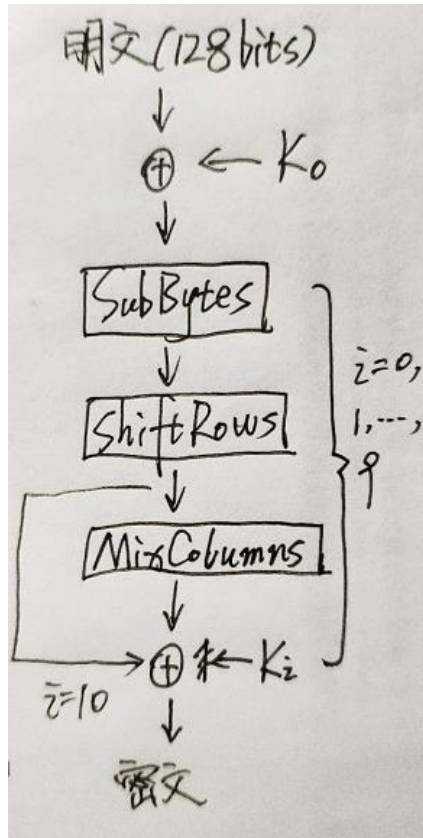 明文(128bits)
⊕ ← K₀
SubBytes
ShiftRows
i=0,
1,…,
9
MixColumns
⊕ ← Kᵢ
i=10
密文